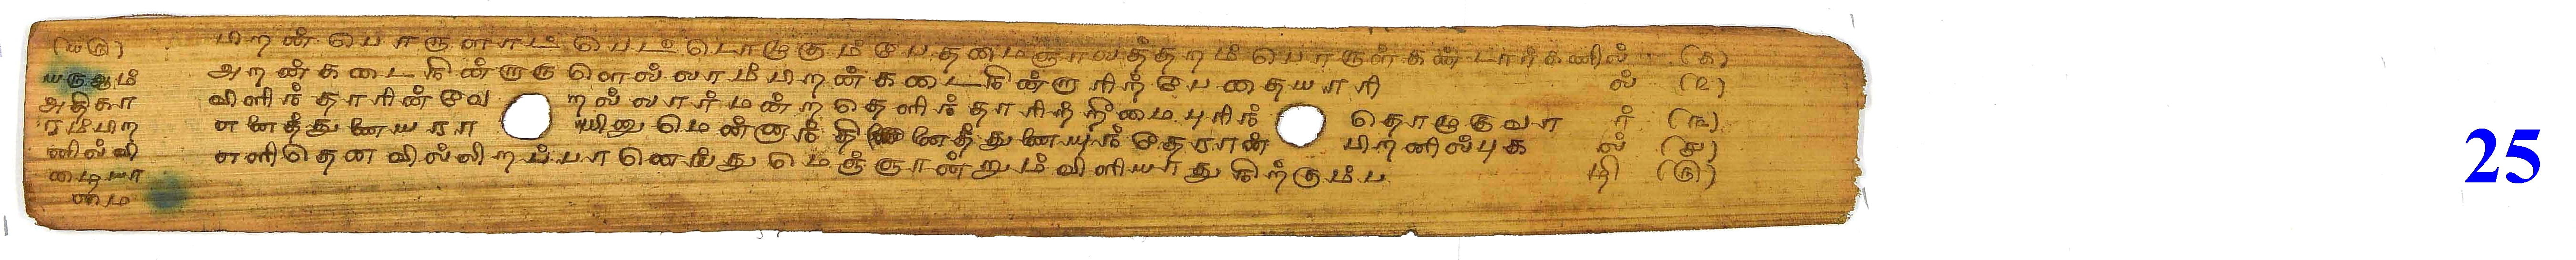 (௰௫) பிறன்பொருளாட்பெட்டொழுகும்பேதைமைஞாலத்தறம்பொருள்கண்டார்கணில் (௧)
௰௫ஆம் அறன்கடைநின்றாருளெல்லாம்பிறன்கடைநின்றாரிற்பேதையாரி ல் (௨)
அதிகா விளிந்தாரின்வே றல்லார்மன்றதெளிந்தாரிற்றீமைபுரிந் தொழுகுவா ர் (௩)
ரம்பிற எனைத்துணையரா யினுமென்னாந்தினைத்துணையுந்தேரான் பிறனில்புக ல் (௪)
னில்வி எளிதெனவில்லிறப்பானெய்துமெஞ்ஞான்றும்விளியாதுநிற்கும்ப ழி (௫)
ழையா
மை
25